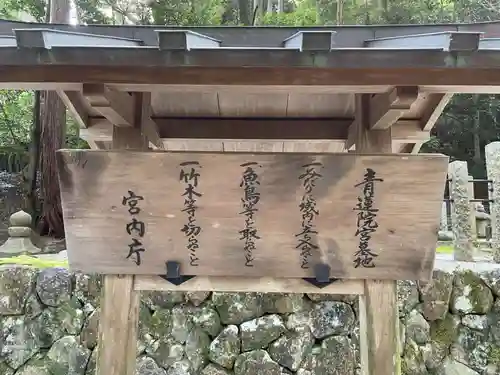 青蓮院宮墓地
一 みだりに域内に立ち入らぬこと
一 魚鳥等を取らぬこと
一 竹木等を切らぬこと
宮内庁